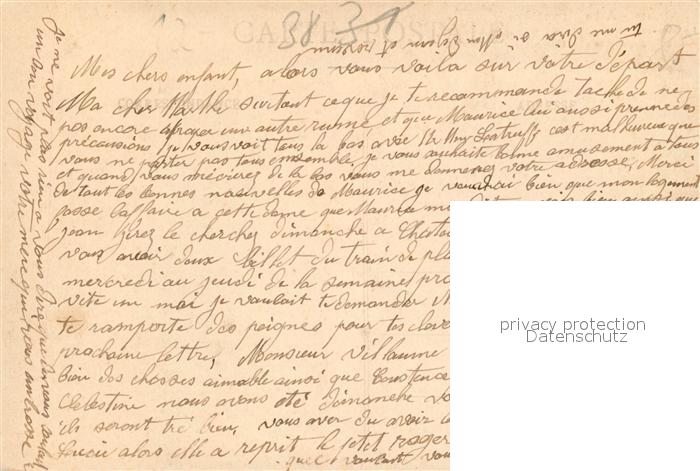 CARTE POSTALE
38 31
tu me dira si Mon Edson et
Mes chers enfant, alors vous voila sur vôtre départ
Ma cher Marthe surtout ce que je te recommande tache de ne
pas encore atraper un autre rume et que Maurice lui aussi prenne des
précaussions, je vous voit tous la bas avec Mr c'est malheureux que
vous ne partez pas tous ensemble, je vous souhaite bonne amusement a tous
et quand vous m'écrirez de la bas vous me donnerez votre adresse, Merci
de tout les bonnes nouvelles de Maurice je voudrai bien que mon logement
fasse l'affaire a cette dame que Maurice
Jean irez le cherchez dimanche a
vous avoir deux billet du train de pla
mercredi au jeudi de la semaines pro
vite un mai je voulait te demander
te ramporte des peignes pour tes
prochaine lettre, Monsieur Villaume
bien des chosses aimable ainsi que Constence
Célestine nous avons été dimanche
ils seront tré bien, vous aver du avoir
alors elle a reprit le
que voulait vou
privacy protection
Datenschutz
Je ne voit plus rien a vous dire que de vous souhait
un bon voyage votre mere qui vous embrasse